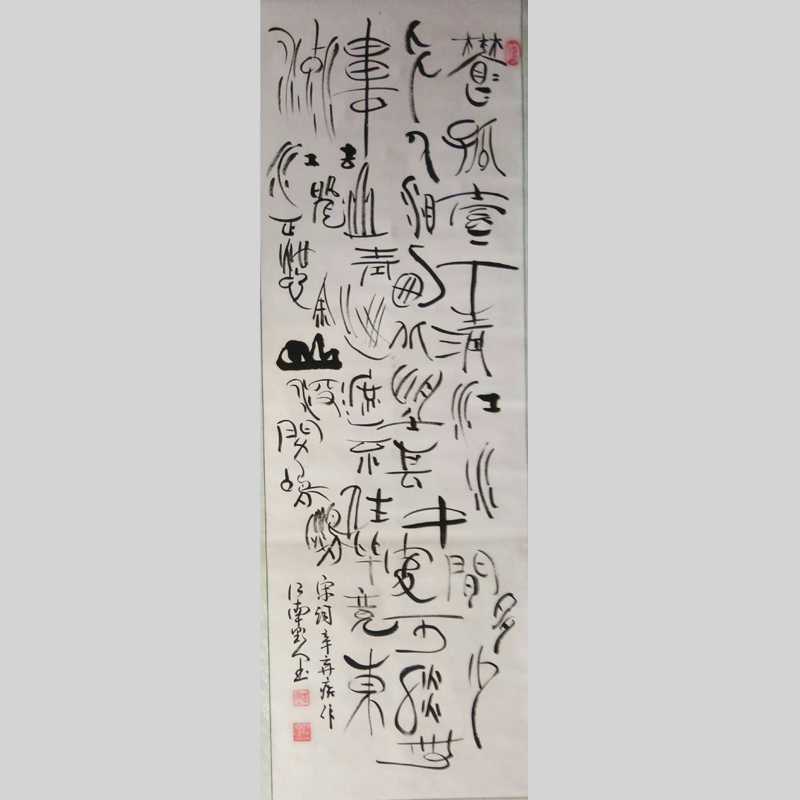 鬱孤臺下清江水中間多少
行人泪西北望長安可憐無
數山青山遮不住毕竟東
流去江晚正愁余山深聞鷓鴣
宋詞辛弃疾作
江南野人